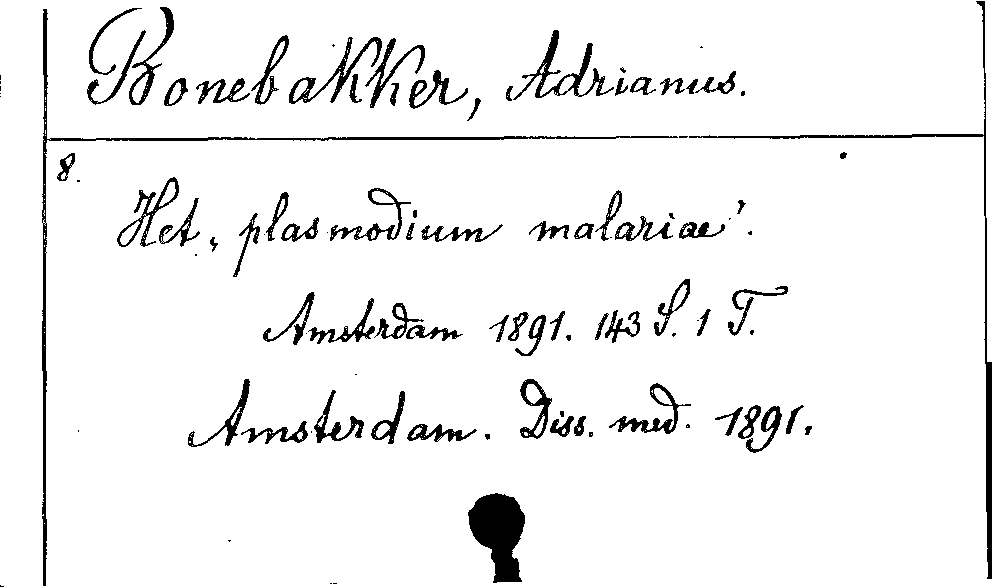 Bonebakker, Adrianus.
8.
Het „plasmodium malariae".
Amsterdam 1891. 143 S. 1 T.
Amsterdam. Diss. med. 1891.